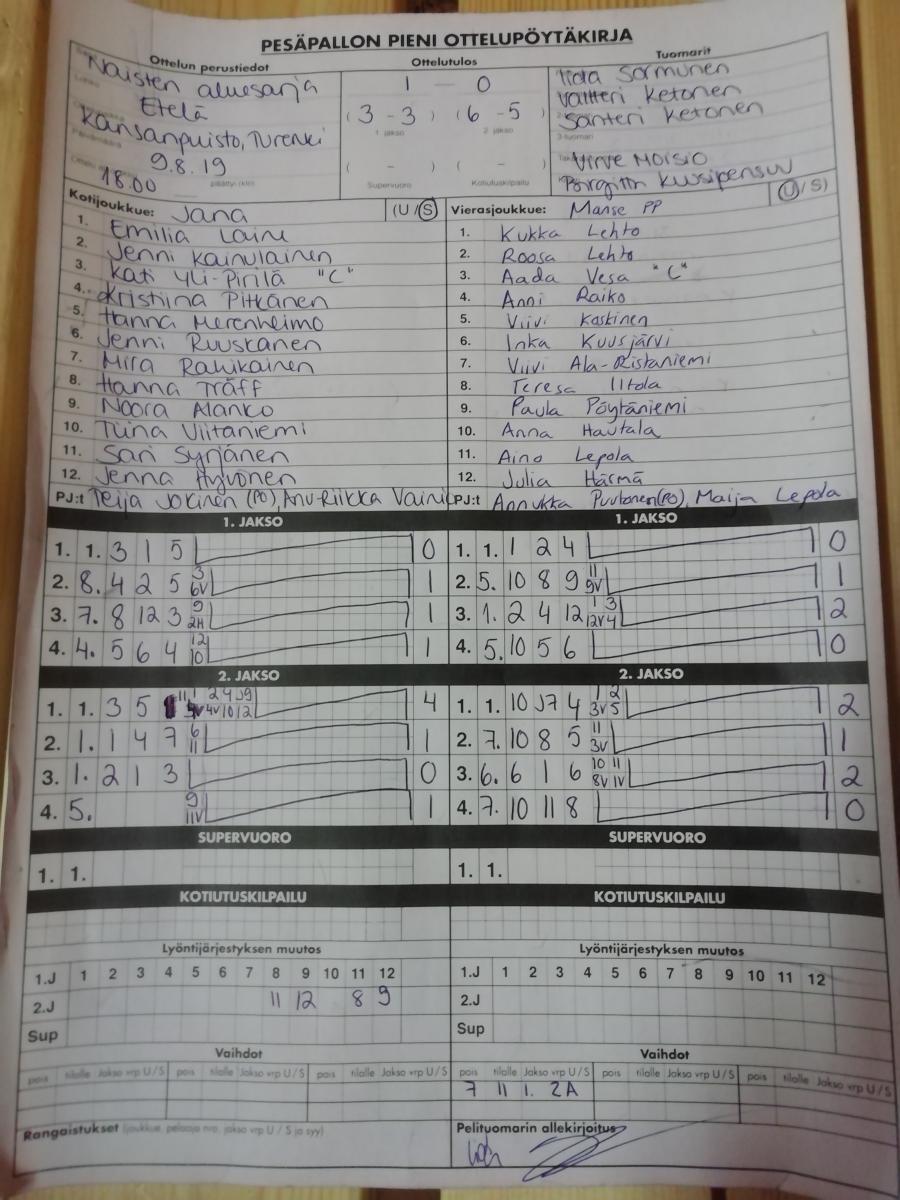 PESÄPALLON PIENI OTTELUPÖYTÄKIRJA
Ottelun perustiedot Ottelutulos Tuomarit
Naisten aluesarja
Etelä
Kansanpuisto, Turenki
9.8.19
18.00
1 - 0
(3 - 3) (6 - 5)
1 jakso 2 jakso
( - ) ( - )
Supervuoro Kotiutuskilpailu
Sormunen
Valtteri Ketonen
Santteri Ketonen
Virve Moisio
Kotijoukkue: Jana (U/S) Vierasjoukkue: Manse PP (U/S)
1. Emilia Laine 1. Kukka Lehto
2. Jenni Kainulainen 2. Roosa Lehto
3. Kati Yli-Pirilä "C" 3. Aada Vesa "C"
4. Kristiina Pitkänen 4. Anni Raiko
5. Hanna Merenheimo 5. Viivi Koskinen
6. Jenni Ruuskanen 6. Inka Kuusjärvi
7. Mira Rahikainen 7. Viivi Ala-Ristaniemi
8. Hanna Träff 8. Teresa Iltola
9. Noora Alanko 9. Paula Pöytäniemi
10. Tiina Viitaniemi 10. Anna Hautala
11. Sari Syrjänen 11. Aino Lepola
12. Jenna Hyvönen 12. Julia Härmä
PJ:t Teija Jokinen (PO), Anu-Riikka Vainio PJ:t Annukka Puutonen(PO), Maija Lepola
1. JAKSO 1. JAKSO
1. 1. 3 1 5 0 1. 1. 1 2 4 0
2. 8. 4 2 5 3 6V 1 2. 5. 10 8 9 11 9V 1
3. 7. 8 12 3 9 2H 1 3. 1. 2 4 12 1 3 12V 4 2
4. 4. 5 6 4 12 10 1 4. 5. 10 5 6 0
2. JAKSO 2. JAKSO
1. 1. 3 5 11 1 2 4 J9 4V 10 12 4 1. 1. 10 J7 4 1 2 3V 5 2
2. 1. 1 4 7 6 11 1 2. 7. 10 8 5 11 3V 1
3. 1. 2 1 3 0 3. 6. 6 1 6 10 11 8V 1V 2
4. 5. 9 11V 1 4. 7. 10 11 8 0
SUPERVUORO SUPERVUORO
1. 1. 1. 1.
KOTIUTUSKILPAILU KOTIUTUSKILPAILU
Lyöntijärjestyksen muutos Lyöntijärjestyksen muutos
1.J 1 2 3 4 5 6 7 8 9 10 11 12 1.J 1 2 3 4 5 6 7 8 9 10 11 12
2.J 11 12 8 9 2.J
Sup Sup
Vaihdot Vaihdot
pois tilalle Jakso vrp U / S pois tilalle Jakso vrp U / S pois tilalle Jakso vrp U / S pois tilalle Jakso vrp U / S pois tilalle Jakso vrp U / S pois tilalle Jakso vrp U / S
7 11 1. 2A
Rangaistukset (joukkue, pelaaja nro, jakso vrp U / S ja syy) Pelituomarin allekirjoitus